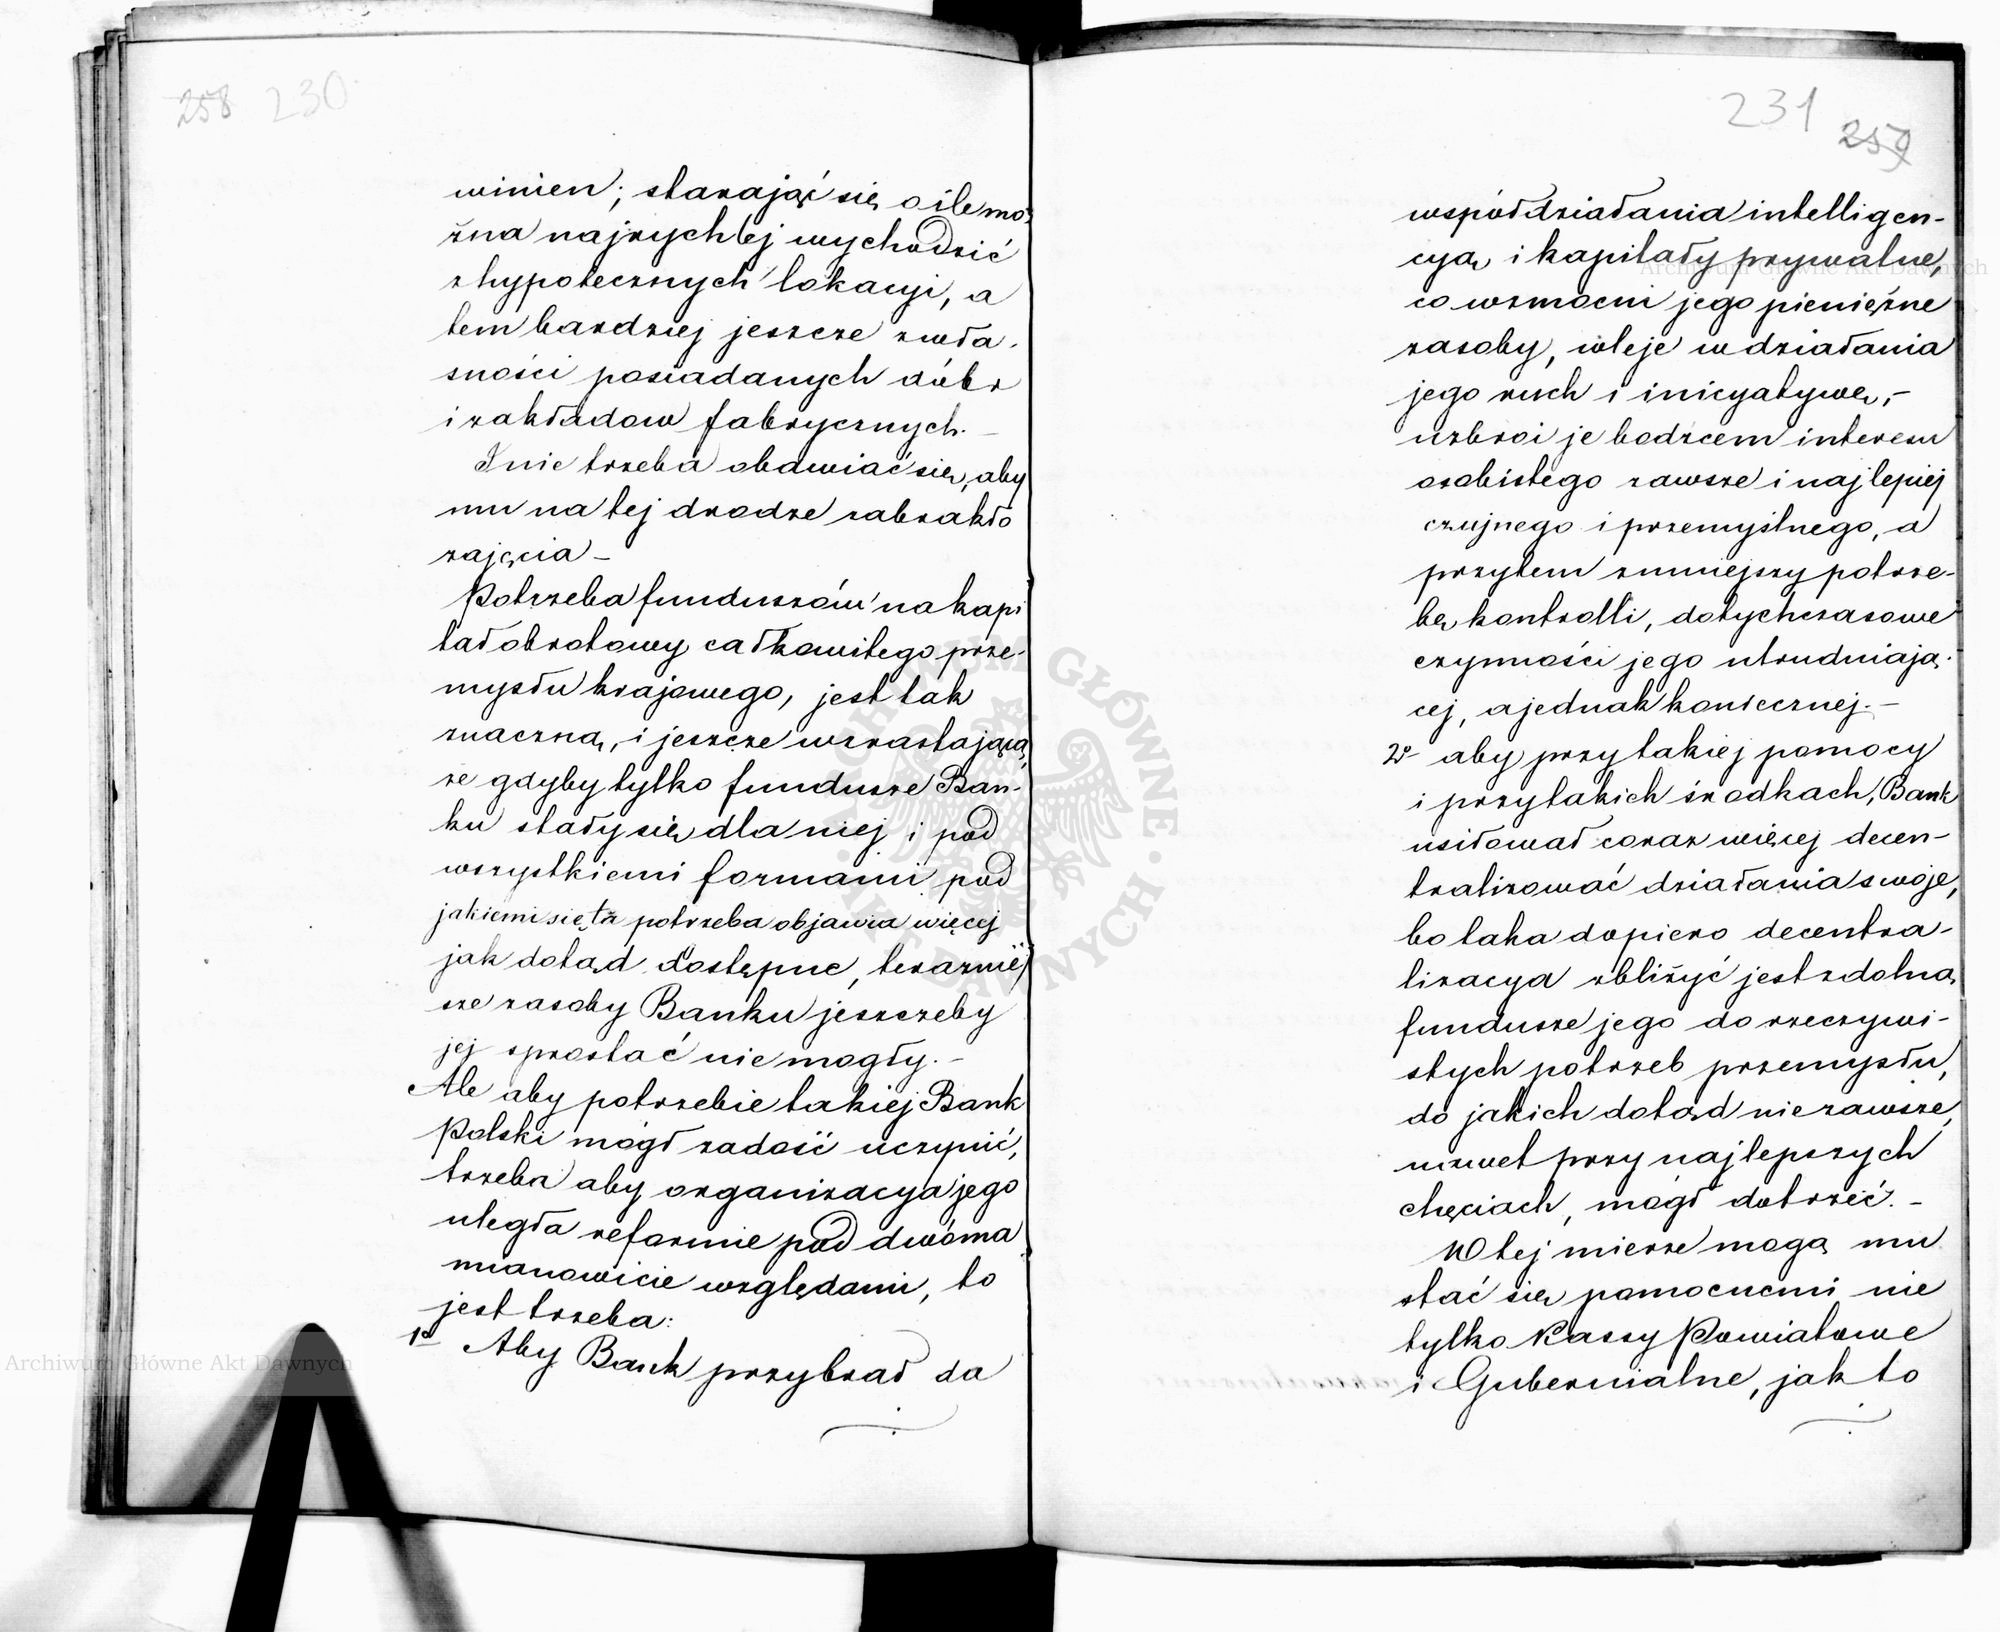 258 230
winien; starając się o ile mo-
żna najrychlej wychodzić
z hypotecznych lokacyi, a
tem bardziej jeszcze z wła-
sności posiadanych dóbr
i zakładow fabrycznych. –
I nie trzeba obawiać się, aby
mu na tej drodze zabrakło
zajęcia –
Potrzeba funduszów na kapi
tał obrotowy całkowitego prze-
mysłu krajowego, jest tak
znaczną, i jeszcze wzrastającą,
że gdyby tylko fundusze Ban-
ku stały się dla niej i pod
wszystkiemi formami pod
jakiemi się ta potrzeba objawia więcej
jak dotąd dostępne, teraźniej
sze zasoby Banku jeszczeby
jej sprostać nie mogły. –
Ale aby potrzebie takiej Bank
Polski mógł zadość uczynić,
trzeba aby organizacya jego
uległa reformie pod dwóma
mianowicie względami, to
jest trzeba:
1o Aby Bank przybrał do
231 259
współdziałania intelligen-
cyą i kapitały prywatne,
co wzmocni jego pieniężne
zasoby, wleje w działania
jego ruch i inicyatywę, –
uzbroi je bodzcem interesu
osobistego zawsze i najlepiej
czujnego i przemyślnego, a
przytem zmniejszy potrze-
bę kontrolli, dotychczasowe
czynności jego utrudniają-
cej, a jednak koniecznej. –
2o aby przy takiej pomocy
i przy takich środkach, Bank
usiłował coraz więcej decen-
tralizować działania swoje,
bo taka dopiero decentra-
lizacya zbliżyć jest zdolna
fundusze jego do rzeczywi-
stych potrzeb przemysłu,
do jakich dotąd nie zawsze,
nawet przy najlepszych
chęciach, mógł dotrzeć. –
W tej mierze mogą mu
stać się pomocnemi nie
tylko Kassy Powiatowe
i Gubernialne, jak to
Archiwum Główne Akt Dawnych
Archiwum Główne Akt Dawnych
ARCHIWUM GŁÓWNE AKT DAWNYCH